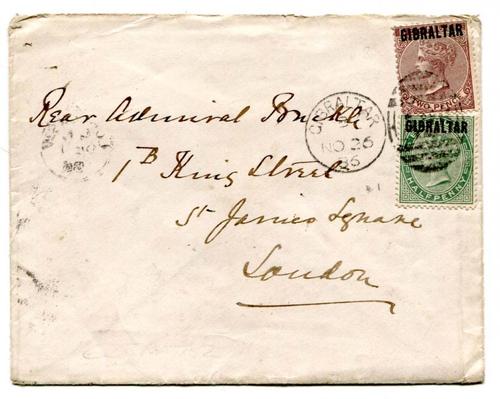 GIBRALTAR
TWO PENCE
GIBRALTAR
HALFPENNY
GIBRALTAR
NO 26
86
Rear Admiral Buckle
1B King Street
St James Square
London